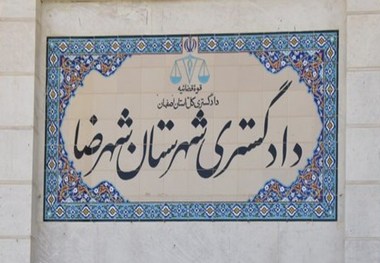 قوه قضائیه
دادگستری کل استان اصفهان
دادگستری شهرستان شهرضا